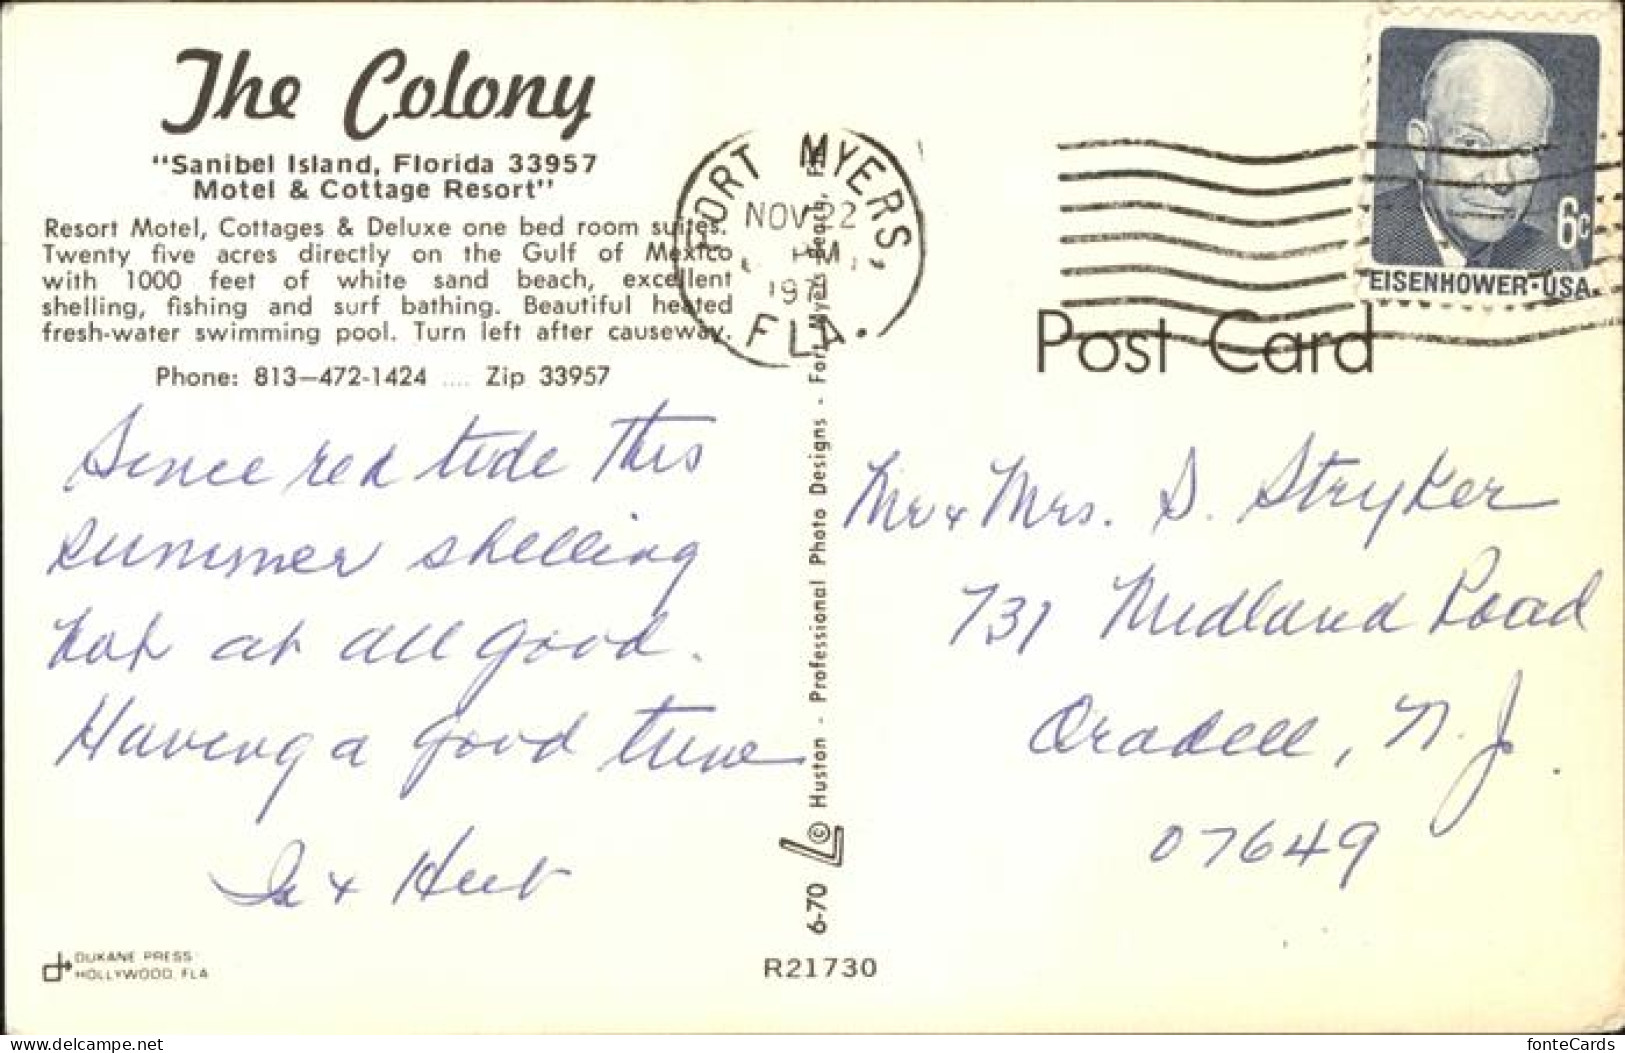 The Colony
"Sanibel Island, Florida 33957
Motel & Cottage Resort"
Resort Motel, Cottages & Deluxe one bed room suites.
Twenty five acres directly on the Gulf of Mexico
with 1000 feet of white sand beach, excellent
shelling, fishing and surf bathing. Beautiful heated
fresh-water swimming pool. Turn left after causeway.
Phone: 813-472-1424 .... Zip 33957
Since red tide this
summer shelling
not at all good.
Having a good time
& Herb
DUKANE PRESS
HOLLYWOOD, FLA
FORT MYERS,
NOV 22
PM
FLA.
6-70 © Huston - Professional Photo Designs - Fort Myers Beach,
R21730
6c
EISENHOWER·USA
Post Card
Mr & Mrs. S. Stryker
731 Midland Road
Oradell, N.J.
07649
fonteCards
www.delcampe.net